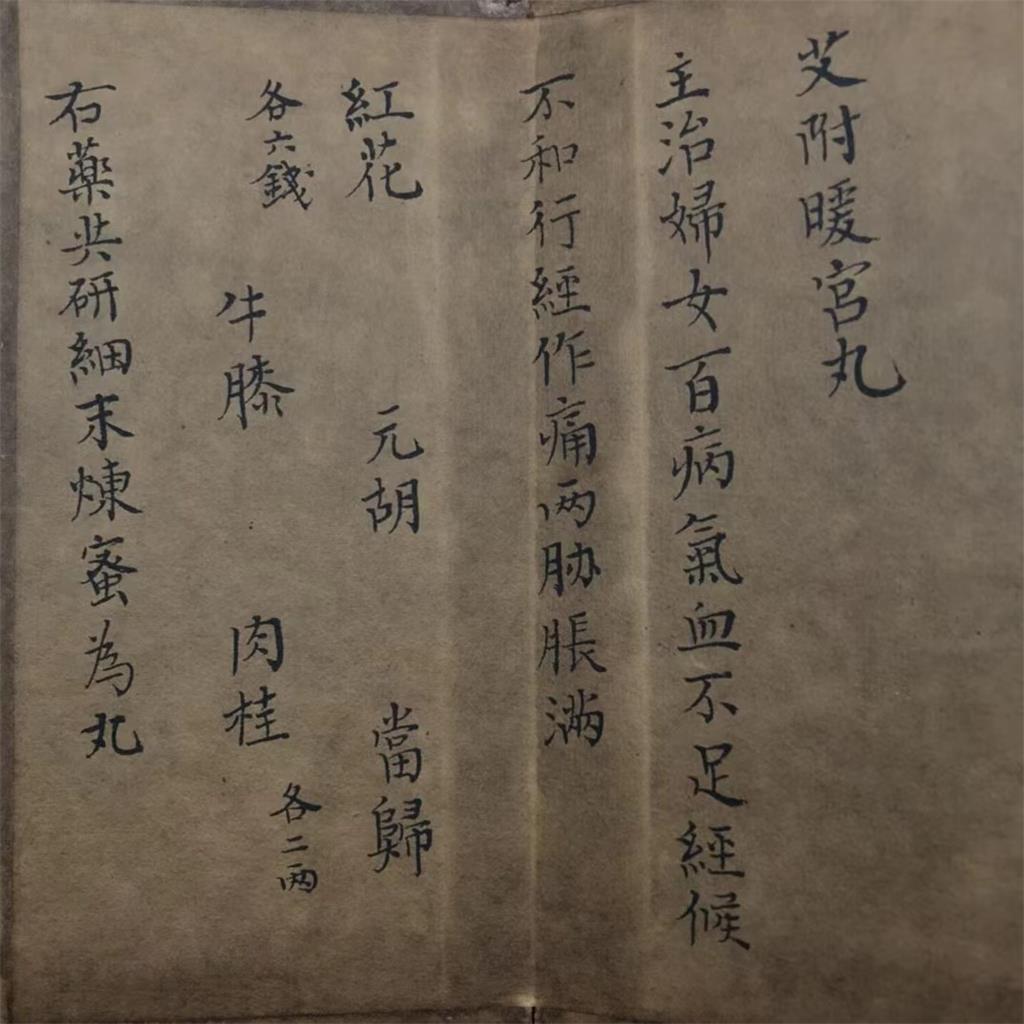 艾附暖宮丸
主治婦女百病氣血不足經候
不和行經作痛两胁脹滿
紅花 元胡 當歸
各六錢 牛膝 肉桂 各二两
右藥共研細末煉蜜為丸